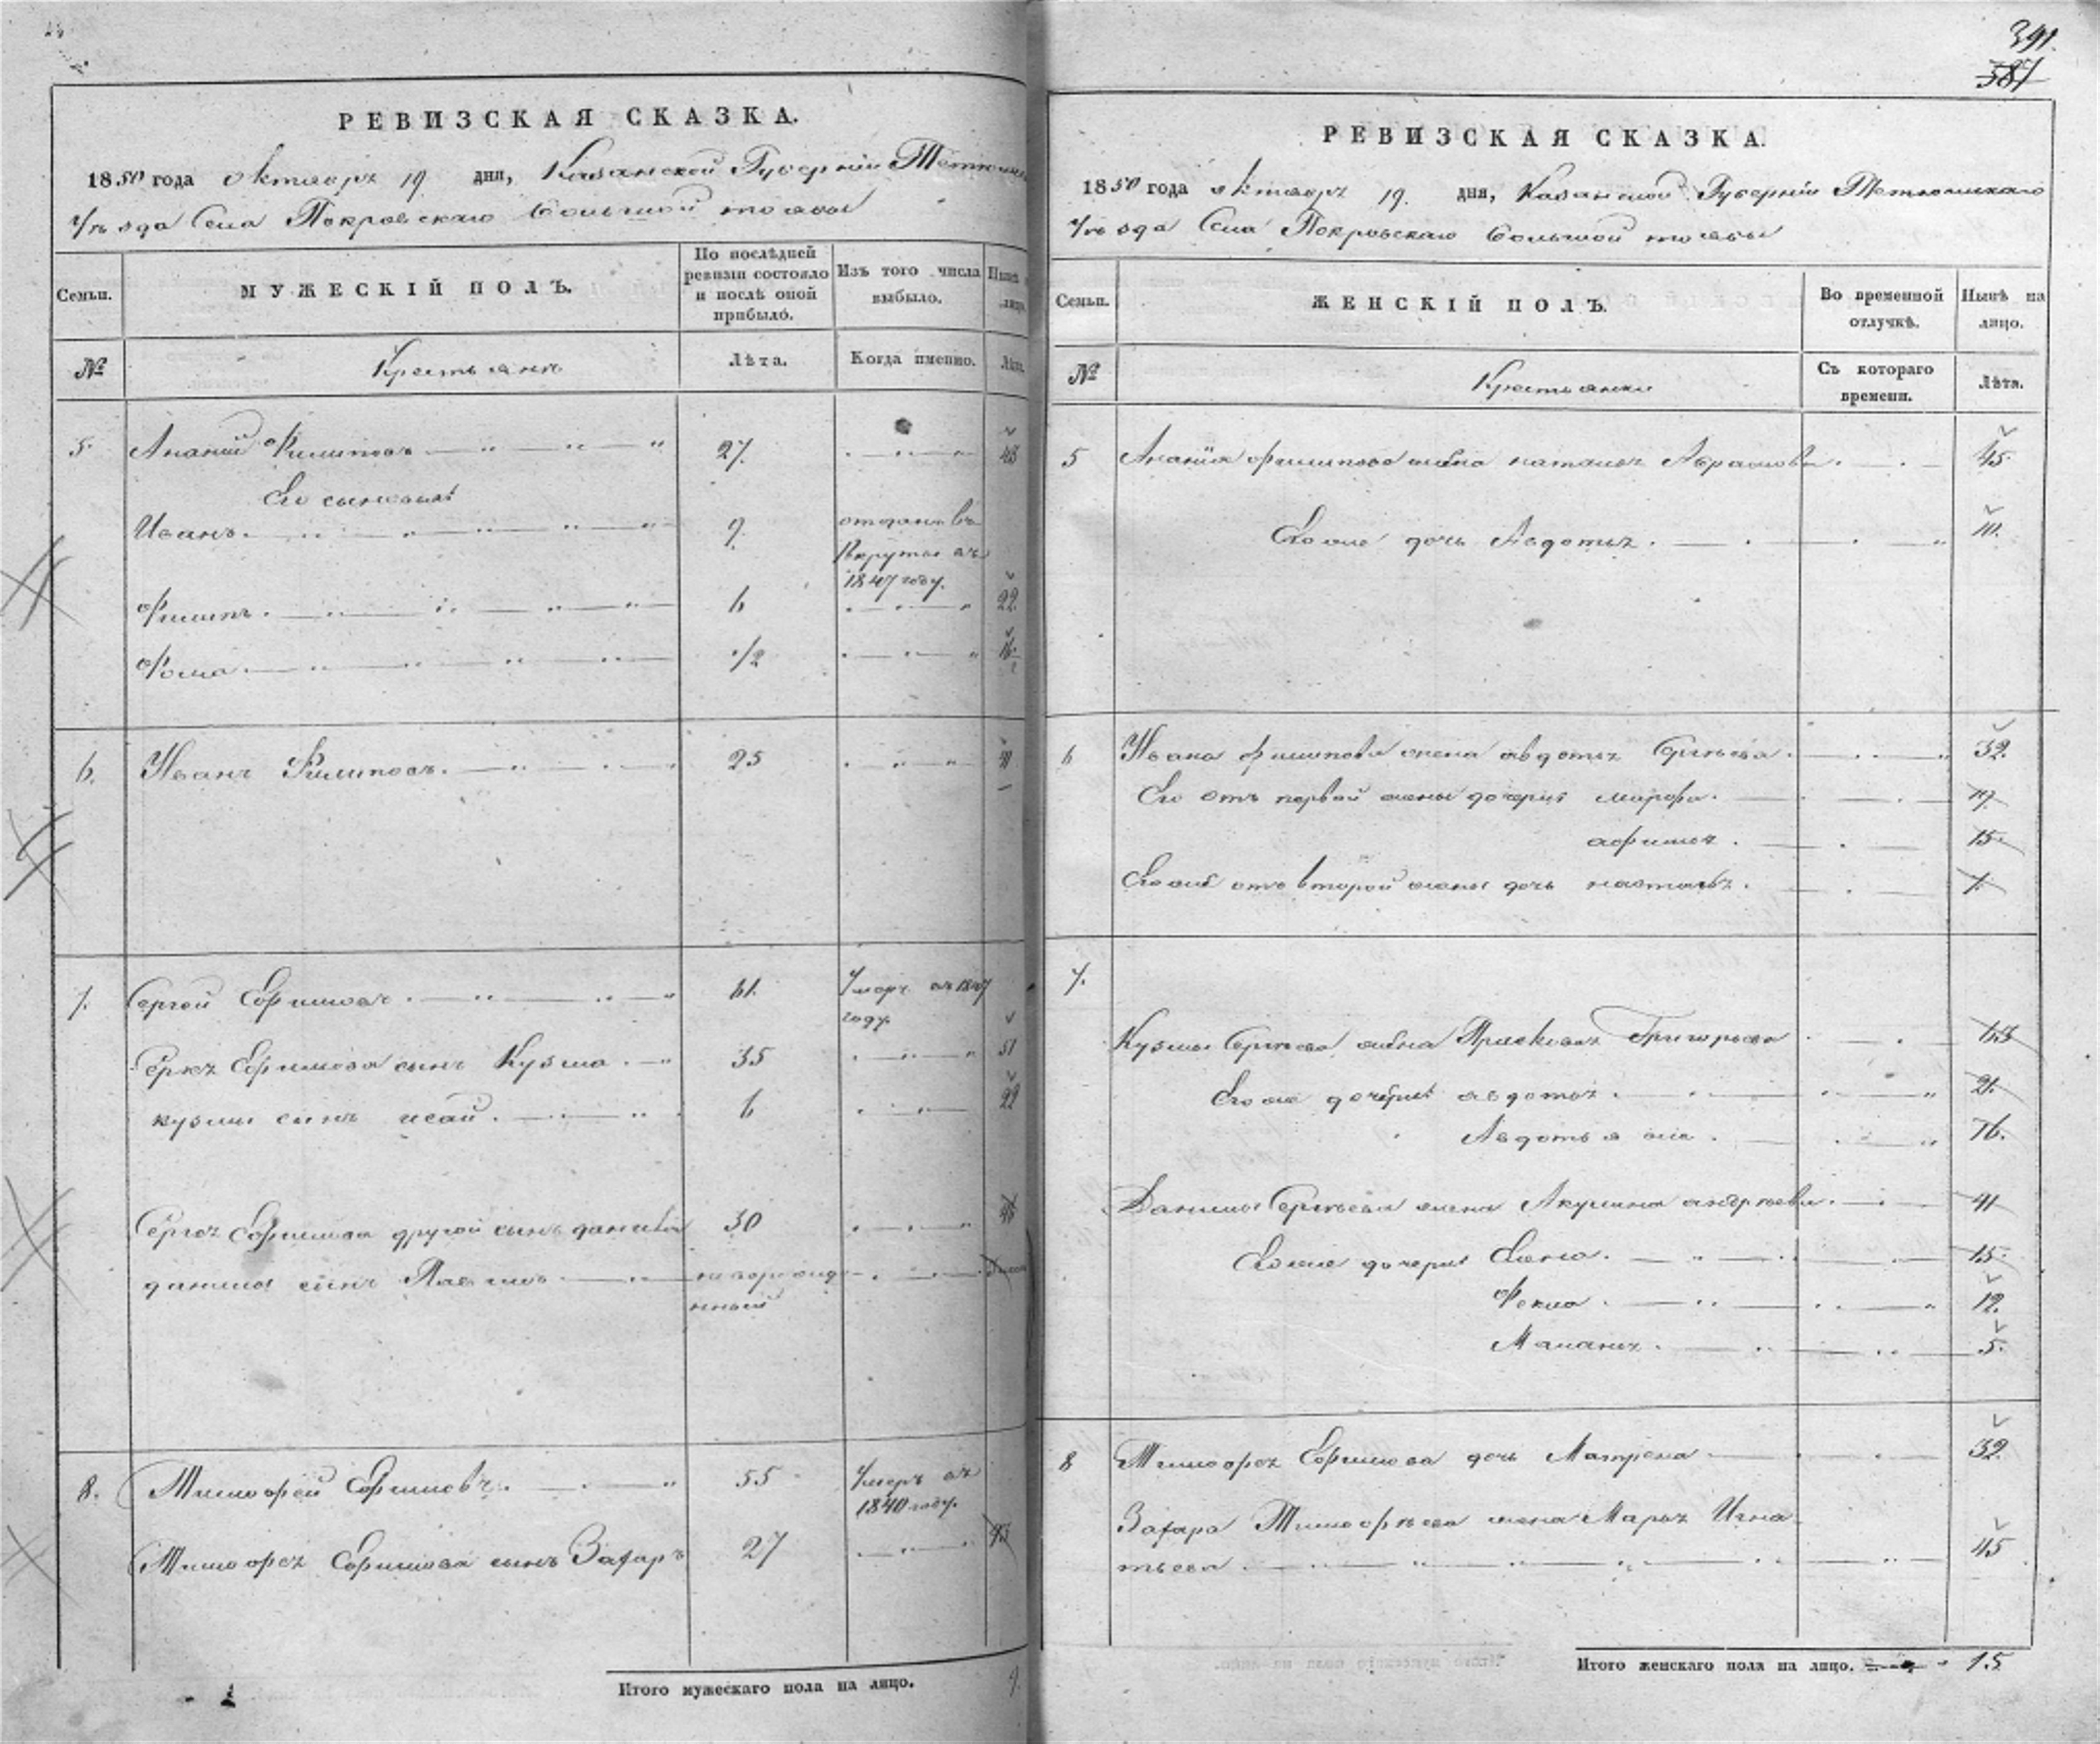 РЕВИЗСКАЯ СКАЗКА.
1850 года октября 19 дня, Казанской Губернiи
уѣзда Села Покровскаго Большой тоябы
Семьи.
МУЖЕСКІЙ ПОЛЪ.
По послѣдней ревизіи состояло и послѣ оной прибыло.
Изъ того числа выбыло.
Нынѣ лицо.
№
Крестьянъ
Лѣта.
Когда именно.
Лѣта.
5. Ананій Филиповъ 27. 43
Его сыновья
Иванъ. 9. отданъ въ
Рекруты въ
1847 году.
Филипъ. 6 22.
Фома 1/2 16.
6. Иванъ Филиповъ. 25
7. Сергей Ефимовъ. 61. Умеръ въ 1847
году.
Сергея Ефимова сынъ Кузма. 35 51
кузмы сынъ исай. 6 22
Сергея Ефимова другой сынъ данила 30 46
данилы сынъ новорожде
нный
8. Тимофей Ефимовъ. 55 Умеръ въ
1840 году.
Тимофея Ефимова сынъ Захаръ 27 43
Итого мужескаго пола на лицо. 9.
391.
387
РЕВИЗСКАЯ СКАЗКА.
1850 года октября 19. дня, Казанской Губернiи Тетюшскаго
уѣзда Села Покровскаго Большой тоябы
Семьи.
ЖЕНСКІЙ ПОЛЪ.
Во временной отлучкѣ.
Нынѣ на лицо.
№
Крестьянки
Съ котораго времени.
Лѣта.
5 Ананiя филипова жена наталья Абрамова. 45.
Его же дочь Авдотья.
6 Ивана филипова жена авдотья Сергѣева. 32.
Его отъ первой жены дочери марфа. 19.
афимья. 15.
Его же отъ второй жены дочь настасья. 1.
7.
Кузмы Сергѣева жена Прасковья Григорьева
Его же дочери авдотья. 21.
Авдотья же. 16.
Данилы Сергѣева жена Акулина андрѣева. 41
Его же дочери Елена. 15.
Фекла. 12.
Маланья. 5.
8 Тимофея Ефимова дочь Матрена 32.
Захара Тимофѣева жена Марья Игна
тьева. 45
Итого женскаго пола на лицо. 15